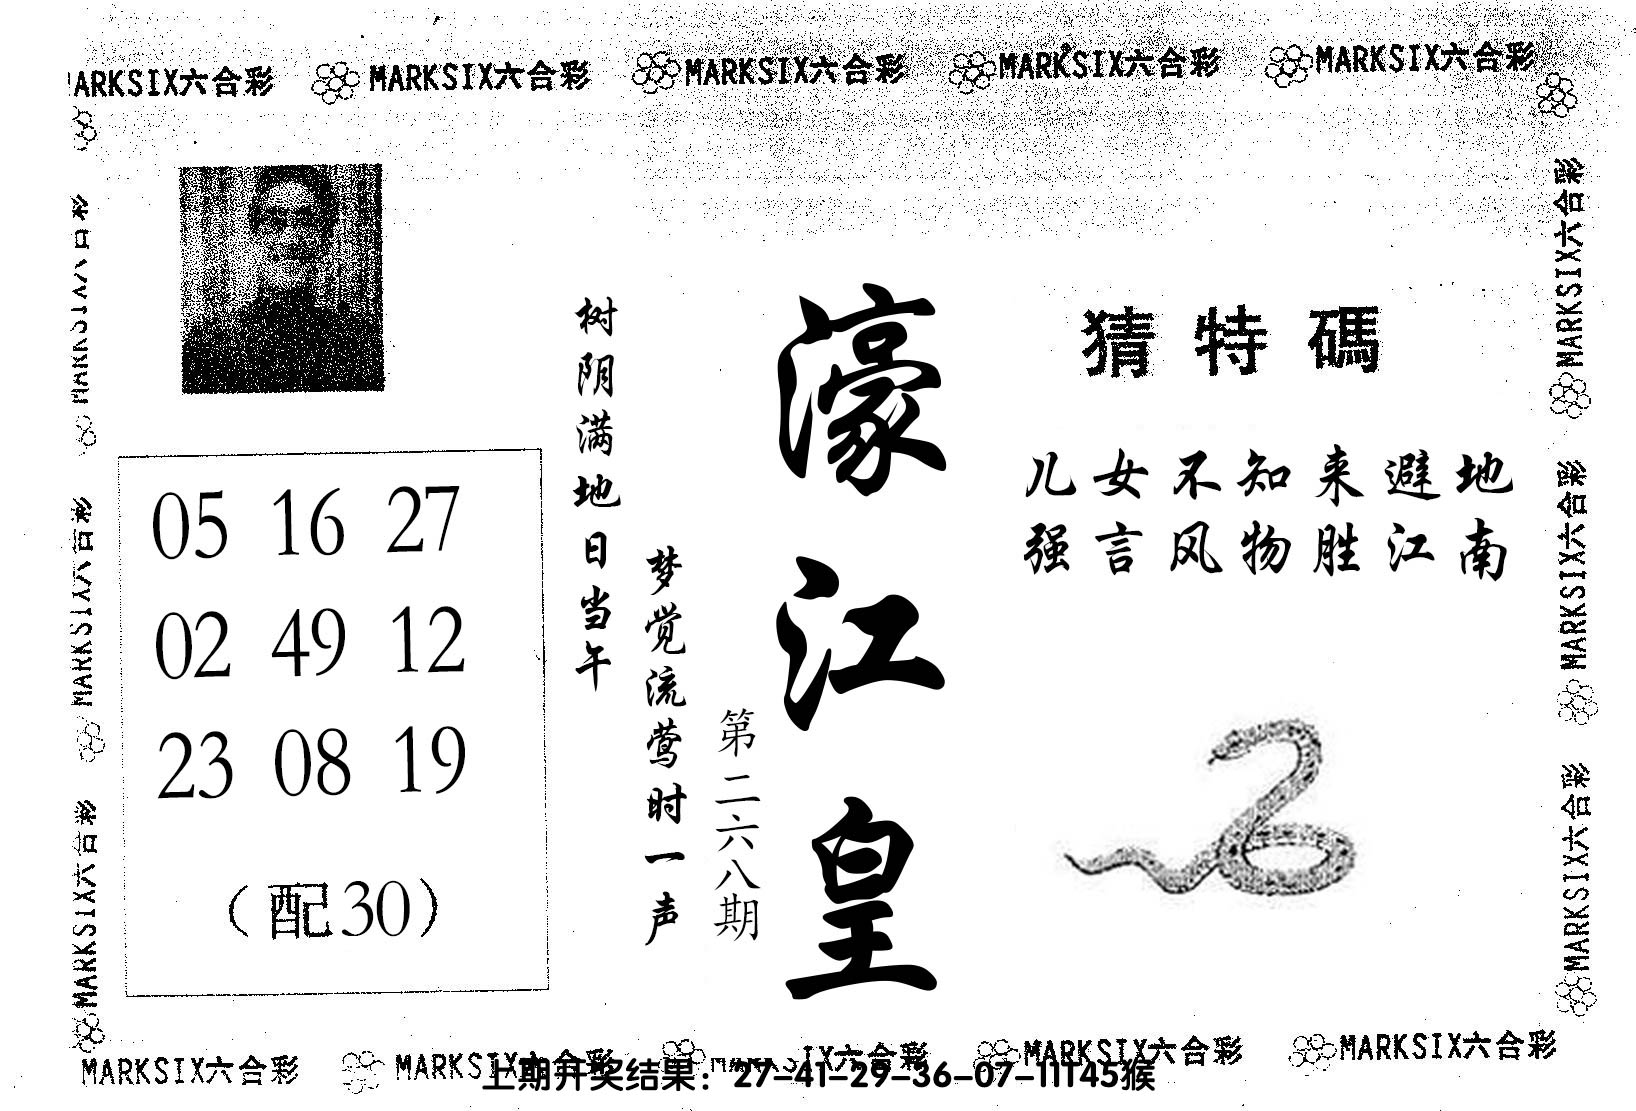 MARKSIX六合彩 MARKSIX六合彩 MARKSIX六合彩 MARKSIX六合彩 MARKSIX六合彩
猜特碼
儿女不知来避地
强言风物胜江南
濠江皇
第二六八期
树阴满地日当午
梦觉流莺时一声
05 16 27
02 49 12
23 08 19
（配30）
MARKSIX六合彩
MARKSIX六合彩
MARKSIX六合彩
MARKSIX六合彩
MARKSIX六合彩
MARKSIX六合彩
MARKSIX六合彩 MARKSIX六合彩 IX六合彩 MARKSIX六合彩 MARKSIX六合彩
上期开奖结果：27-41-29-36-07-11T45猴